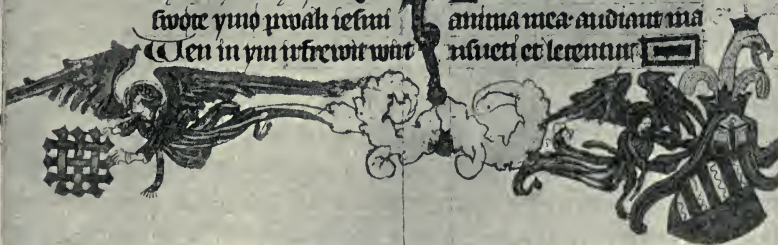 swote ymo pwali iesmi
Wen in ym irfrewit wirt
anima mea· audiant ma
nsueti et letentur